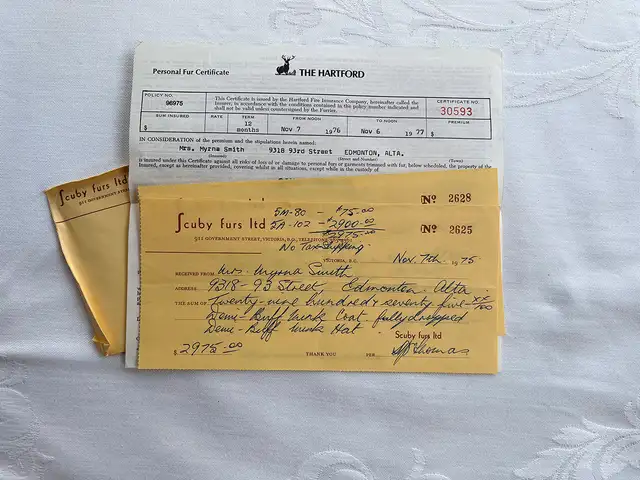 Personal Fur Certificate
THE HARTFORD
POLICY NO.
96975
This Certificate is issued by the Hartford Fire Insurance Company, hereinafter called the
Insurer, in accordance with the conditions contained in the policy number indicated and
shall not be valid unless countersigned by the Furrier.
CERTIFICATE NO.
30593
SUM INSURED
RATE
TERM
FROM NOON
TO NOON
PREMIUM
$
12
months
Nov 7 1976
Nov 6 1977
$
IN CONSIDERATION of the premium and the stipulations herein named:
Mrs. Myrna Smith 9318 93rd Street EDMONTON, ALTA.
(Insured) (Street and Number) (Town)
is insured under this Certificate against all risks of loss of or damage to personal furs or garments trimmed with fur, below scheduled, the property of the
Insured, except as hereinafter provided, covering whilst in all situations, except while in the custody of
Scuby furs ltd
No 2628
Scuby furs ltd
GOVERNMENT STREET, VICTORIA, B.C.,
SM-80 - $75.00
SA-102 - $2900.00
$2975.00
No Tax-Shipping
No 2625
VICTORIA, B.C. Nov. 7th 1975
RECEIVED FROM Mrs. Myrna Smith
ADDRESS 9318-93 Street, Edmonton. Alta.
THE SUM OF Twenty-nine hundred & seventy five xx/100
Demi-Buff Mink Coat. fully dropped
Demi-Buff Mink Hat.
Scuby furs ltd
$ 2975.00
THANK YOU
PER Thomas